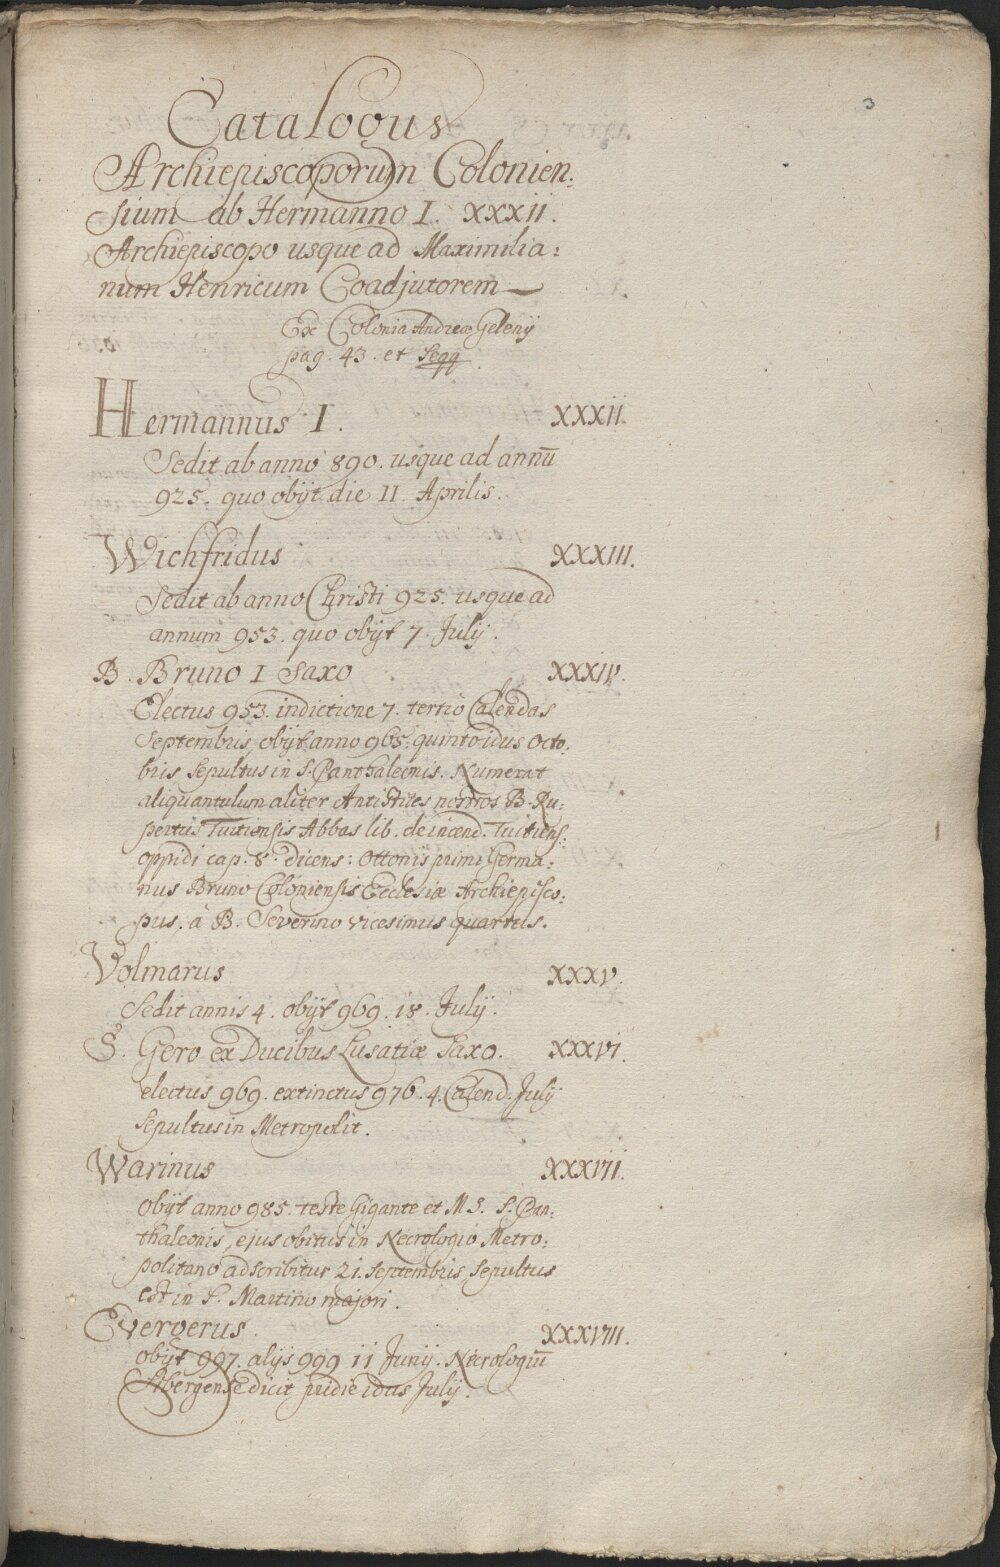 3
Catalogus
Archiepiscoporum Colonien:
sium ab Hermanno I. XXXII.
Archiepiscopo usque ad Maximilia:
num Henricum Coadjutorem —
Ex Colonia Andreæ Gelenij
pag. 43. et seqq.
Hermannus I. XXXII.
Sedit ab anno 890. usque ad annū
925. quo obijt die 11 Aprilis.
Wichfridus XXXIII.
Sedit ab anno Christi 925. usque ad
annum 953. quo obijt 7. Julij.
B. Bruno I Saxo XXXIV.
Electus 953. indictione 7. tertio Calendas
Septembris, obijt anno 965. quinto idus Octo:
bris sepultus in S. Panthaleonis. Numerat
aliquantulum aliter Antistites nostros B. Ru:
pertus Tuitiensis Abbas lib. de incend. Tuitiens:
oppidi cap. 8. dicens: Ottonis primi Germa:
nus Bruno Coloniensis Ecclesiæ Archiepisco:
pus, à B. Severino vicesimus quartus.
Volmarus XXXV.
Sedit annis 4. obijt 969. 18. Julij.
S. Gero ex Ducibus Lusatiæ Saxo. XXXVI.
electus 969. extinctus 976. 4. Calend. Julij
sepultus in Metropolit.
Warinus XXXVII.
obijt anno 985. teste Gigante et M.S. S. Pan:
thaleonis, ejus obitus in Necrologio Metro:
politano adscribitur 21. Septembris, sepultus
est in S. Martino majori.
Evergerus. XXXVIII.
obijt 997. alijs 999 11 Junij. Necrologiū
Abergense dicit pridie idus Julij.